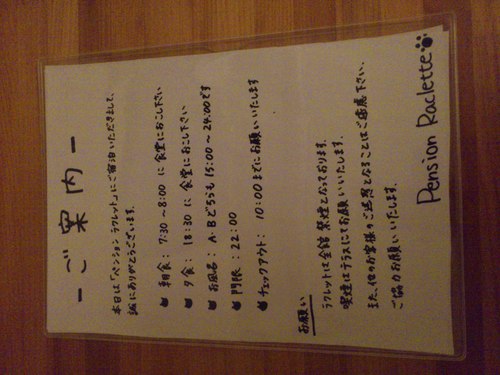 -ご案内-
本日は「ペンション ラクレット」にご宿泊いただきまして、
誠にありがとうございます。
朝食: 7:30 ~8:00 に 食堂におこし下さい
夕食: 18:30 に 食堂におこし下さい
お風呂: A・Bどちらも 15:00 ~ 24:00です
門限: 22:00
チェックアウト: 10:00までにお願いいたします
お願い
ラクレットは全館 禁煙となっております。
喫煙はテラスにてお願いいたします。
また、他のお客様のご迷惑となることはご遠慮下さい。
ご協力お願いいたします。
Pension Raclette